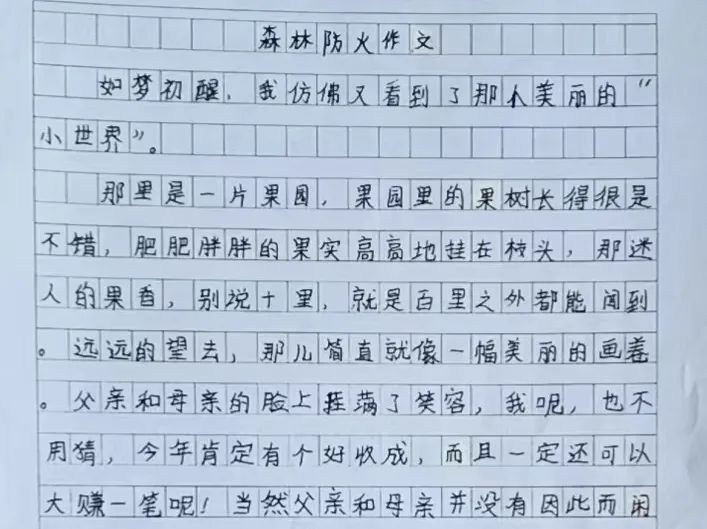 森林防火作文
如梦初醒，我仿佛又看到了那个美丽的“
小世界”。
那里是一片果园，果园里的果树长得很是
不错，肥肥胖胖的果实高高地挂在枝头，那迷
人的果香，别说十里，就是百里之外都能闻到
。远远的望去，那儿简直就像一幅美丽的画卷
。父亲和母亲的脸上挂满了笑容，我呢，也不
用猜，今年肯定有个好收成，而且一定还可以
大赚一笔呢！当然父亲和母亲并没有因此而闲